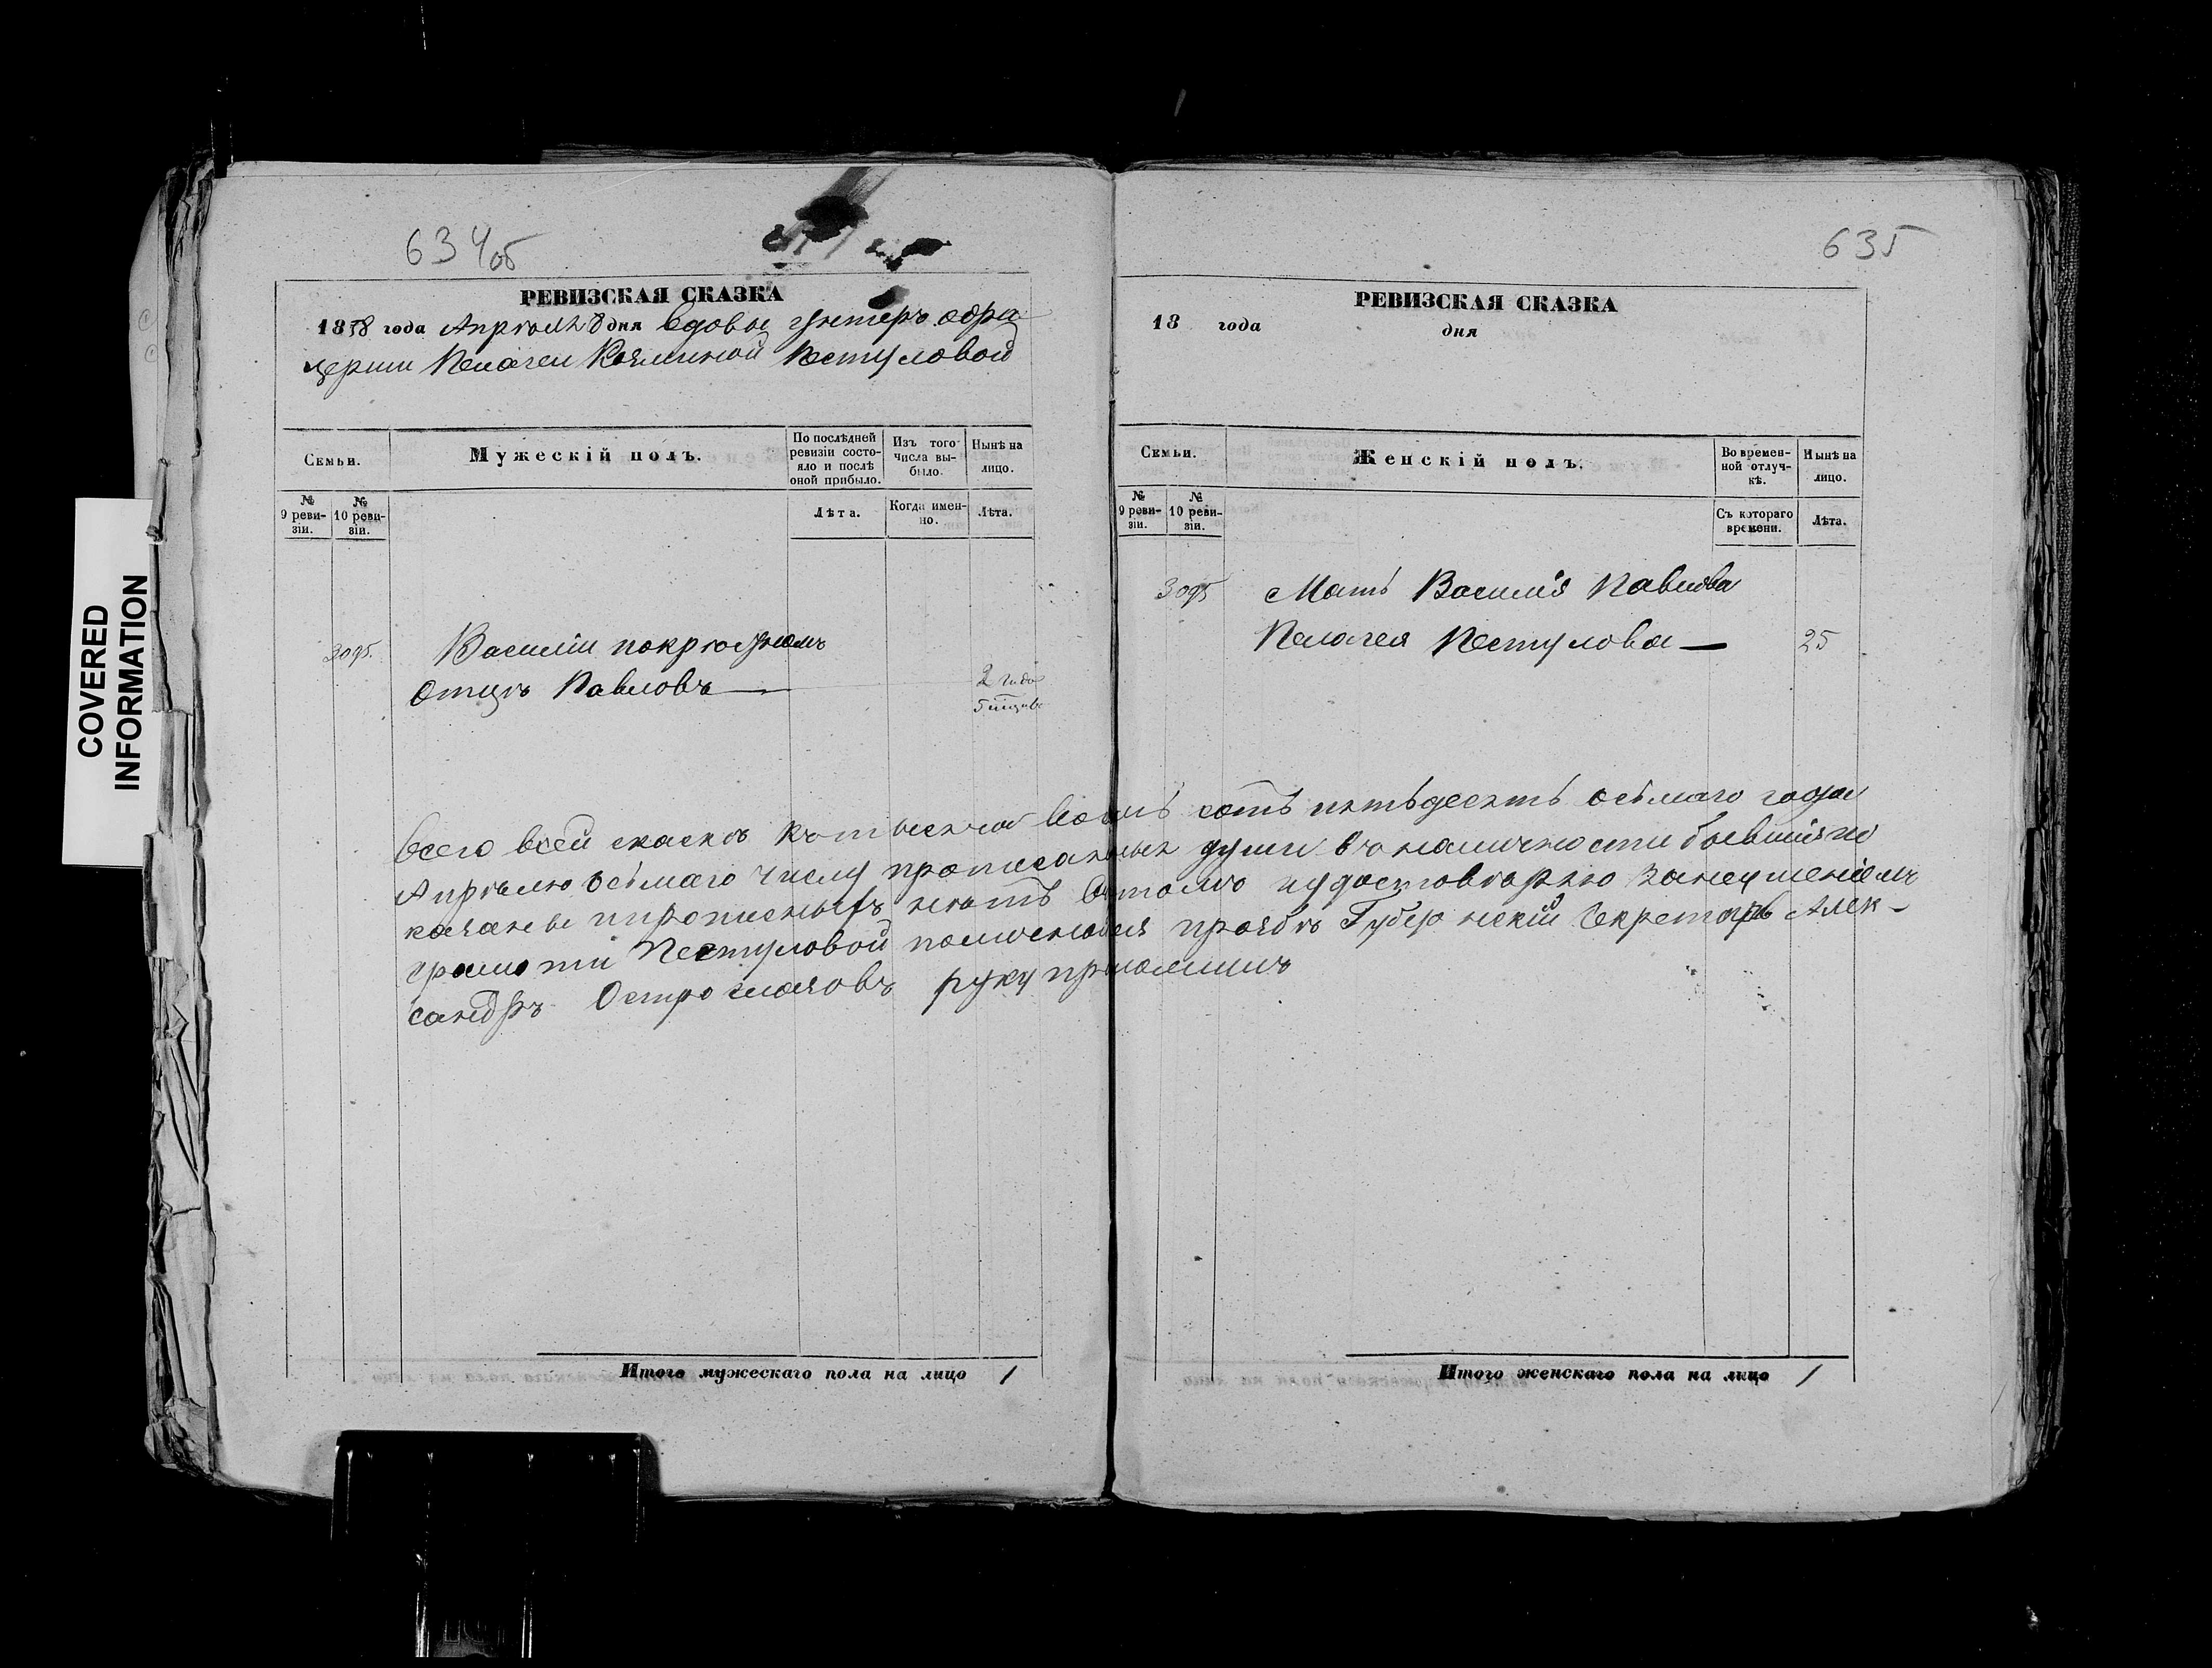 COVERED
INFORMATION
634об
РЕВИЗСКАЯ СКАЗКА
1858 года Апреля 8 дня вдовы унтеръ офи
церши Пелагеи Козминой Пестуловой
Семьи.
Мужескій полъ.
По послѣдней ревизіи состояло и послѣ оной прибыло.
Изъ того числа выбыло.
Нынѣ на лицо.
№ 9 ревизіи.
№ 10 ревизіи.
Лѣта.
Когда именно.
Лѣта.
3095.
Василіи покрюстнамъ
Отцѣ Павловъ
2 года
5 мѣсцевъ
Итого мужескаго пола на лицо 1
635
РЕВИЗСКАЯ СКАЗКА
18 года дня
Семьи.
Женскій полъ.
Во временной отлучкѣ.
Нынѣ на лицо.
№ 9 ревизіи.
№ 10 ревизіи.
Съ котораго времени.
Лѣта.
3095
Мать Василія Павлова
Пелагея Пестулова 25
всего всей скаскѣ къ тысяча восемь сотъ пятьдесятъ осьмаго года
Апрѣлю осьмаго числу прописанных души въ наличности бывшія по
казаны и прописныхъ нѣтъ въ томъ и удостовѣряю за неумѣніемъ
грамоти Пестуловой по личной ея прозбѣ Губернскій Секретарь Алек-
сандръ Остроглазовъ руку приложилъ
Итого женскаго пола на лицо 1